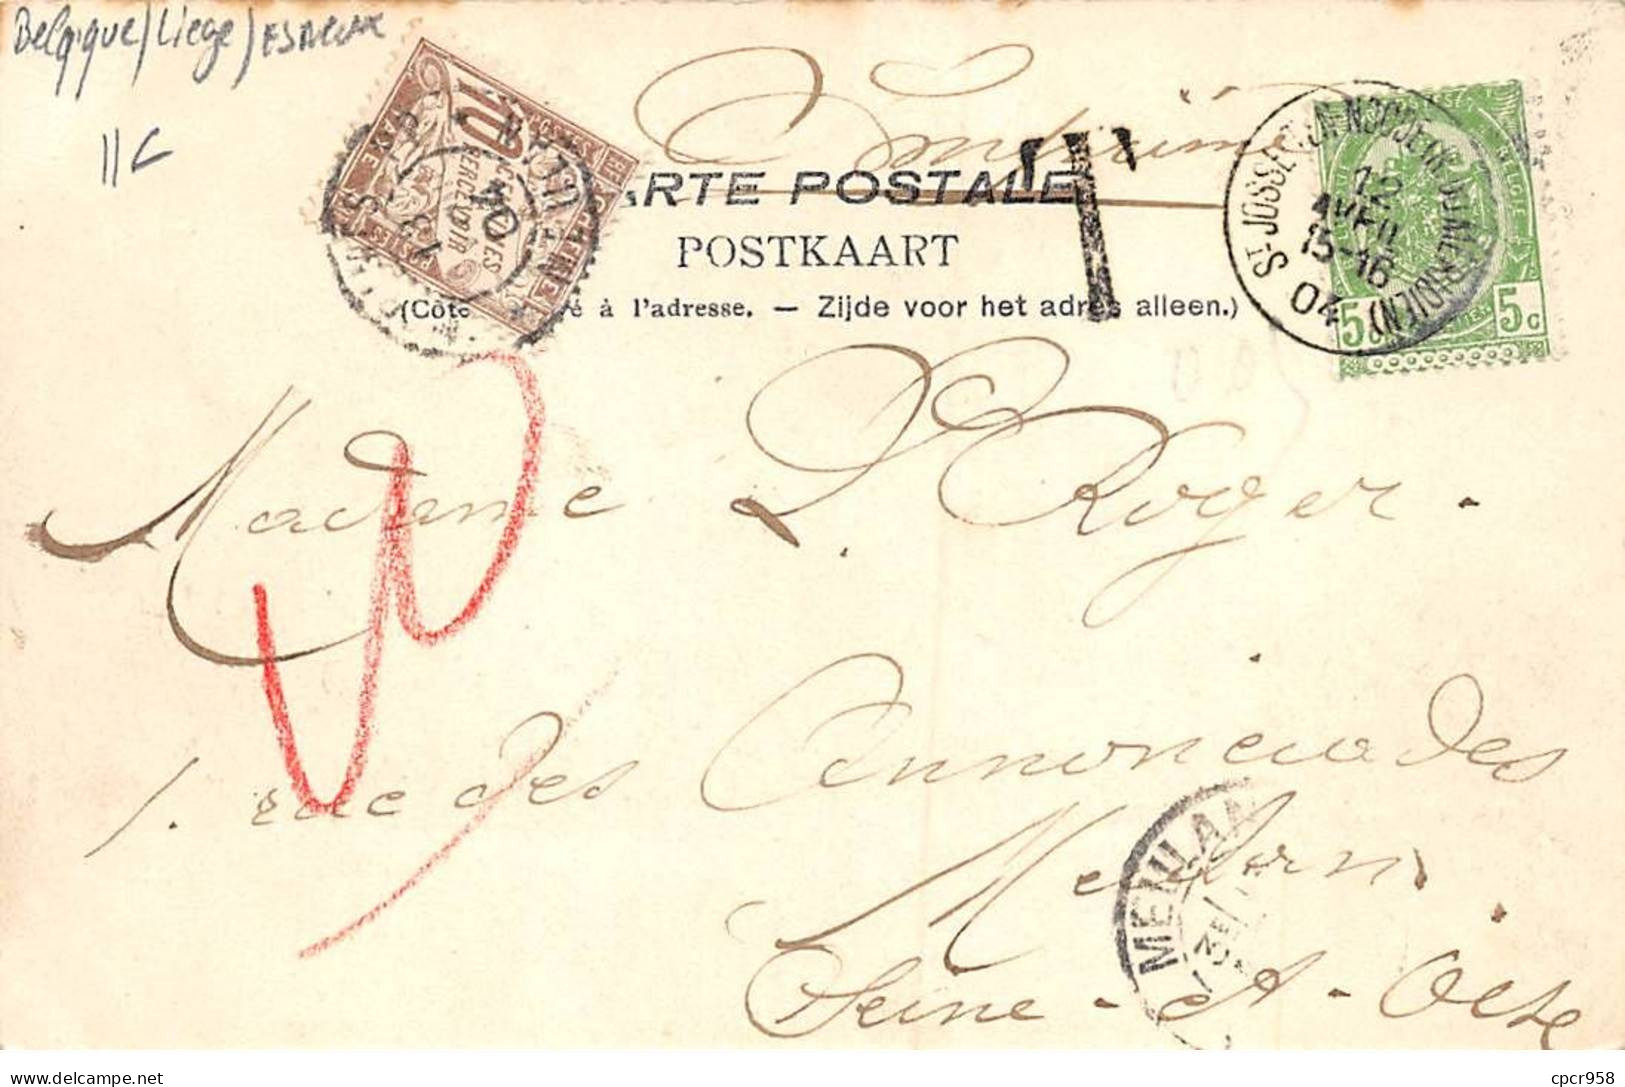 Belgique/Liege/
11C
Imprimé
10
CENTIMES
A PERCEVOIR
T
CARTE POSTALE
POSTKAART
(Côté réservé à l'adresse. — Zijde voor het adres alleen.)
ST-JOSSE-TEN-NOODE
12
AVRIL
15-16
04
5c 5c
MEULAN
13
04
Madame L. Roger.
1. rue des Annonciades
Meulan
Seine-et-Oise
MEULAN
cpcr958